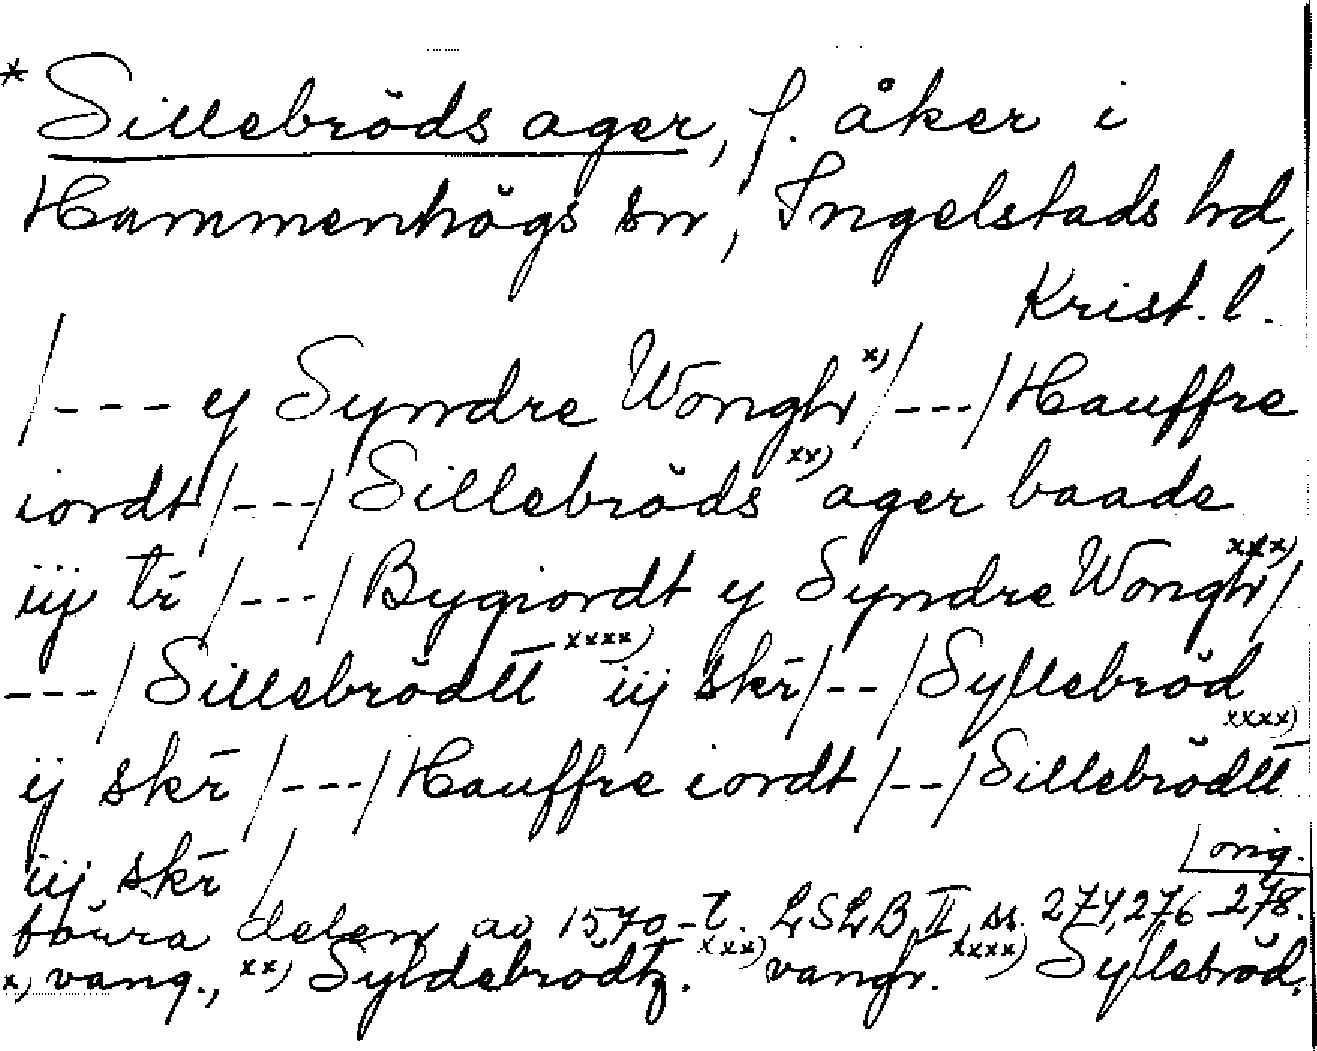 * Sillebröds ager, f. åker i
Hammenhögs sn, Ingelstads hd,
Krist. l.
/--- y Syndre Wongh x) /---/ Hauffre
iordt /---/ Sillebröds xx) ager baade
iij tr̄ /---/ Bygiordt y Syndre Wongh xxx) /
---/ Sillebrödtt xxxx) iij skr̄ /--/ Syllebröd
ij skr̄ /---/ Hauffre iordt /--/ Sillebrödtt xxxx)
iij skr̄ /
orig.
förra delen av 1570-t. LSLB II, ss. 274, 276-278.
x) vang., xx) Syldebrödtz. xxx) vangh. xxxx) Syllebröd.